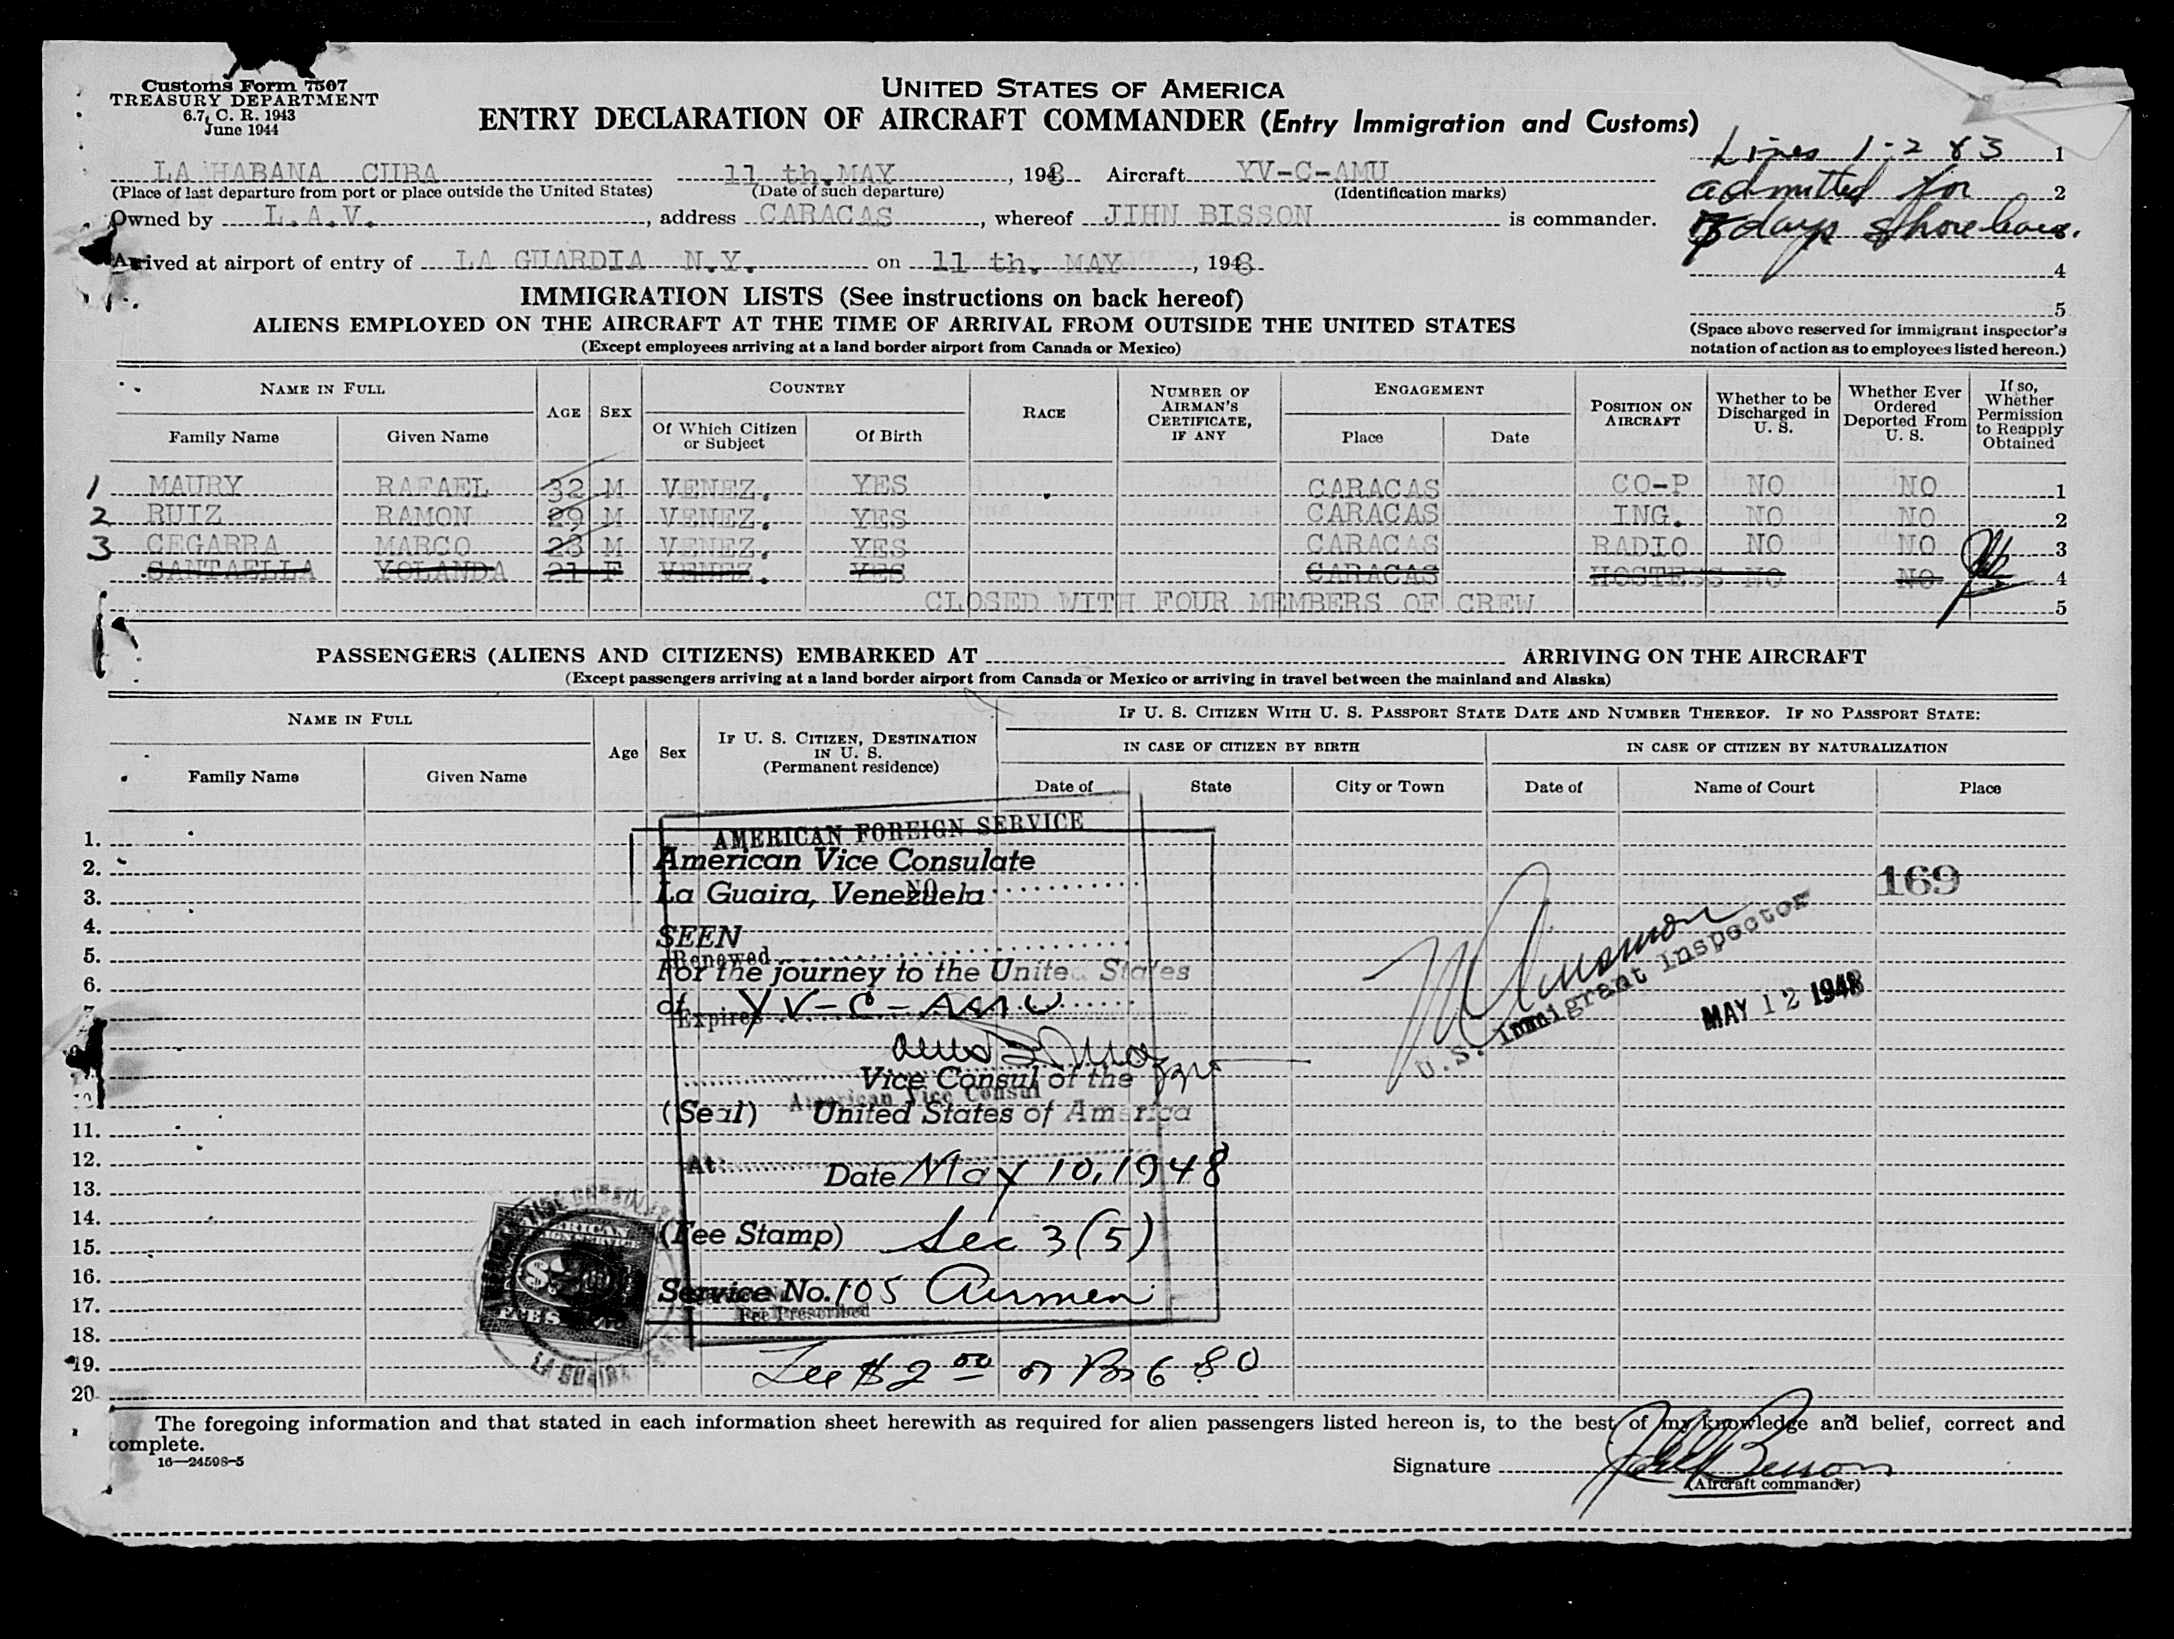 Customs Form 7507
TREASURY DEPARTMENT
6.7, C. R. 1943
June 1944
UNITED STATES OF AMERICA
ENTRY DECLARATION OF AIRCRAFT COMMANDER (Entry Immigration and Customs)
LA HABANA CUBA 11 th. MAY, 1948 Aircraft YV-C-AMU
(Place of last departure from port or place outside the United States) (Date of such departure) (Identification marks)
Owned by L.A.V., address CARACAS, whereof JIHN BISSON is commander.
Arrived at airport of entry of LA GUARDIA N.Y. on 11 th. MAY, 1948
Lines 1-2 & 3 1
admitted for 2
days shore leave.
4
5
(Space above reserved for immigrant inspector's
notation of action as to employees listed hereon.)
IMMIGRATION LISTS (See instructions on back hereof)
ALIENS EMPLOYED ON THE AIRCRAFT AT THE TIME OF ARRIVAL FROM OUTSIDE THE UNITED STATES
(Except employees arriving at a land border airport from Canada or Mexico)
NAME IN FULL AGE SEX COUNTRY RACE NUMBER OF AIRMAN'S CERTIFICATE, IF ANY ENGAGEMENT POSITION ON AIRCRAFT Whether to be Discharged in U. S. Whether Ever Ordered Deported From U. S. If so, Whether Permission to Reapply Obtained
Family Name Given Name Of Which Citizen or Subject Of Birth Place Date
1 MAURY RAFAEL 32 M VENEZ. YES CARACAS CO-P NO NO 1
2 RUIZ RAMON 29 M VENEZ. YES CARACAS ING. NO NO 2
3 CEGARRA MARCO 28 M VENEZ. YES CARACAS RADIO NO NO 3
SANTAELLA YOLANDA 21 F VENEZ. YES CARACAS HOSTESS NO NO 4
CLOSED WITH FOUR MEMBERS OF CREW 5
PASSENGERS (ALIENS AND CITIZENS) EMBARKED AT ARRIVING ON THE AIRCRAFT
(Except passengers arriving at a land border airport from Canada or Mexico or arriving in travel between the mainland and Alaska)
NAME IN FULL Age Sex IF U. S. CITIZEN, DESTINATION IN U. S. (Permanent residence) IF U. S. CITIZEN WITH U. S. PASSPORT STATE DATE AND NUMBER THEREOF. IF NO PASSPORT STATE:
IN CASE OF CITIZEN BY BIRTH IN CASE OF CITIZEN BY NATURALIZATION
Family Name Given Name Date of State City or Town Date of Name of Court Place
1.
2.
3.
4.
5.
6.
7
11.
12.
13.
14.
15.
16.
17.
18.
19.
20
AMERICAN FOREIGN SERVICE
American Vice Consulate
La Guaira, Venezuela
NO
SEEN
Renewed
For the journey to the United States
of YV-C-AMU
Expires
Vice Consul of the
American Vice Consul
(Seal) United States of America
At:
Date May 10, 1948
(Fee Stamp) Sec 3(5)
Service No. 105 Airmen
Fee Prescribed
Fee $2 00 or Bs 6 80
LA GUAIRA
169
U.S. Immigrant Inspector
MAY 12 1948
The foregoing information and that stated in each information sheet herewith as required for alien passengers listed hereon is, to the best of my knowledge and belief, correct and
complete.
16—24598-5
Signature
(Aircraft commander)